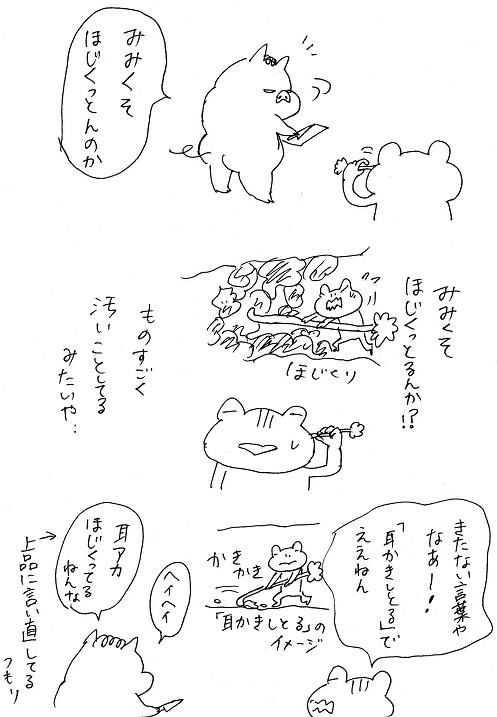 みみくそ
ほじくっとんのか
みみくそ
ほじくっとるんか!?
ほじくり
ものすごく
汚いことしてる
みたいや…
きたない言葉や
なぁー!
「耳かきしとる」で
ええねん
かき
かき
「耳かきしとる」の
イメージ
ヘイヘイ
耳アカ
ほじくってる
ねんな
→上品に言い直してる
つもり